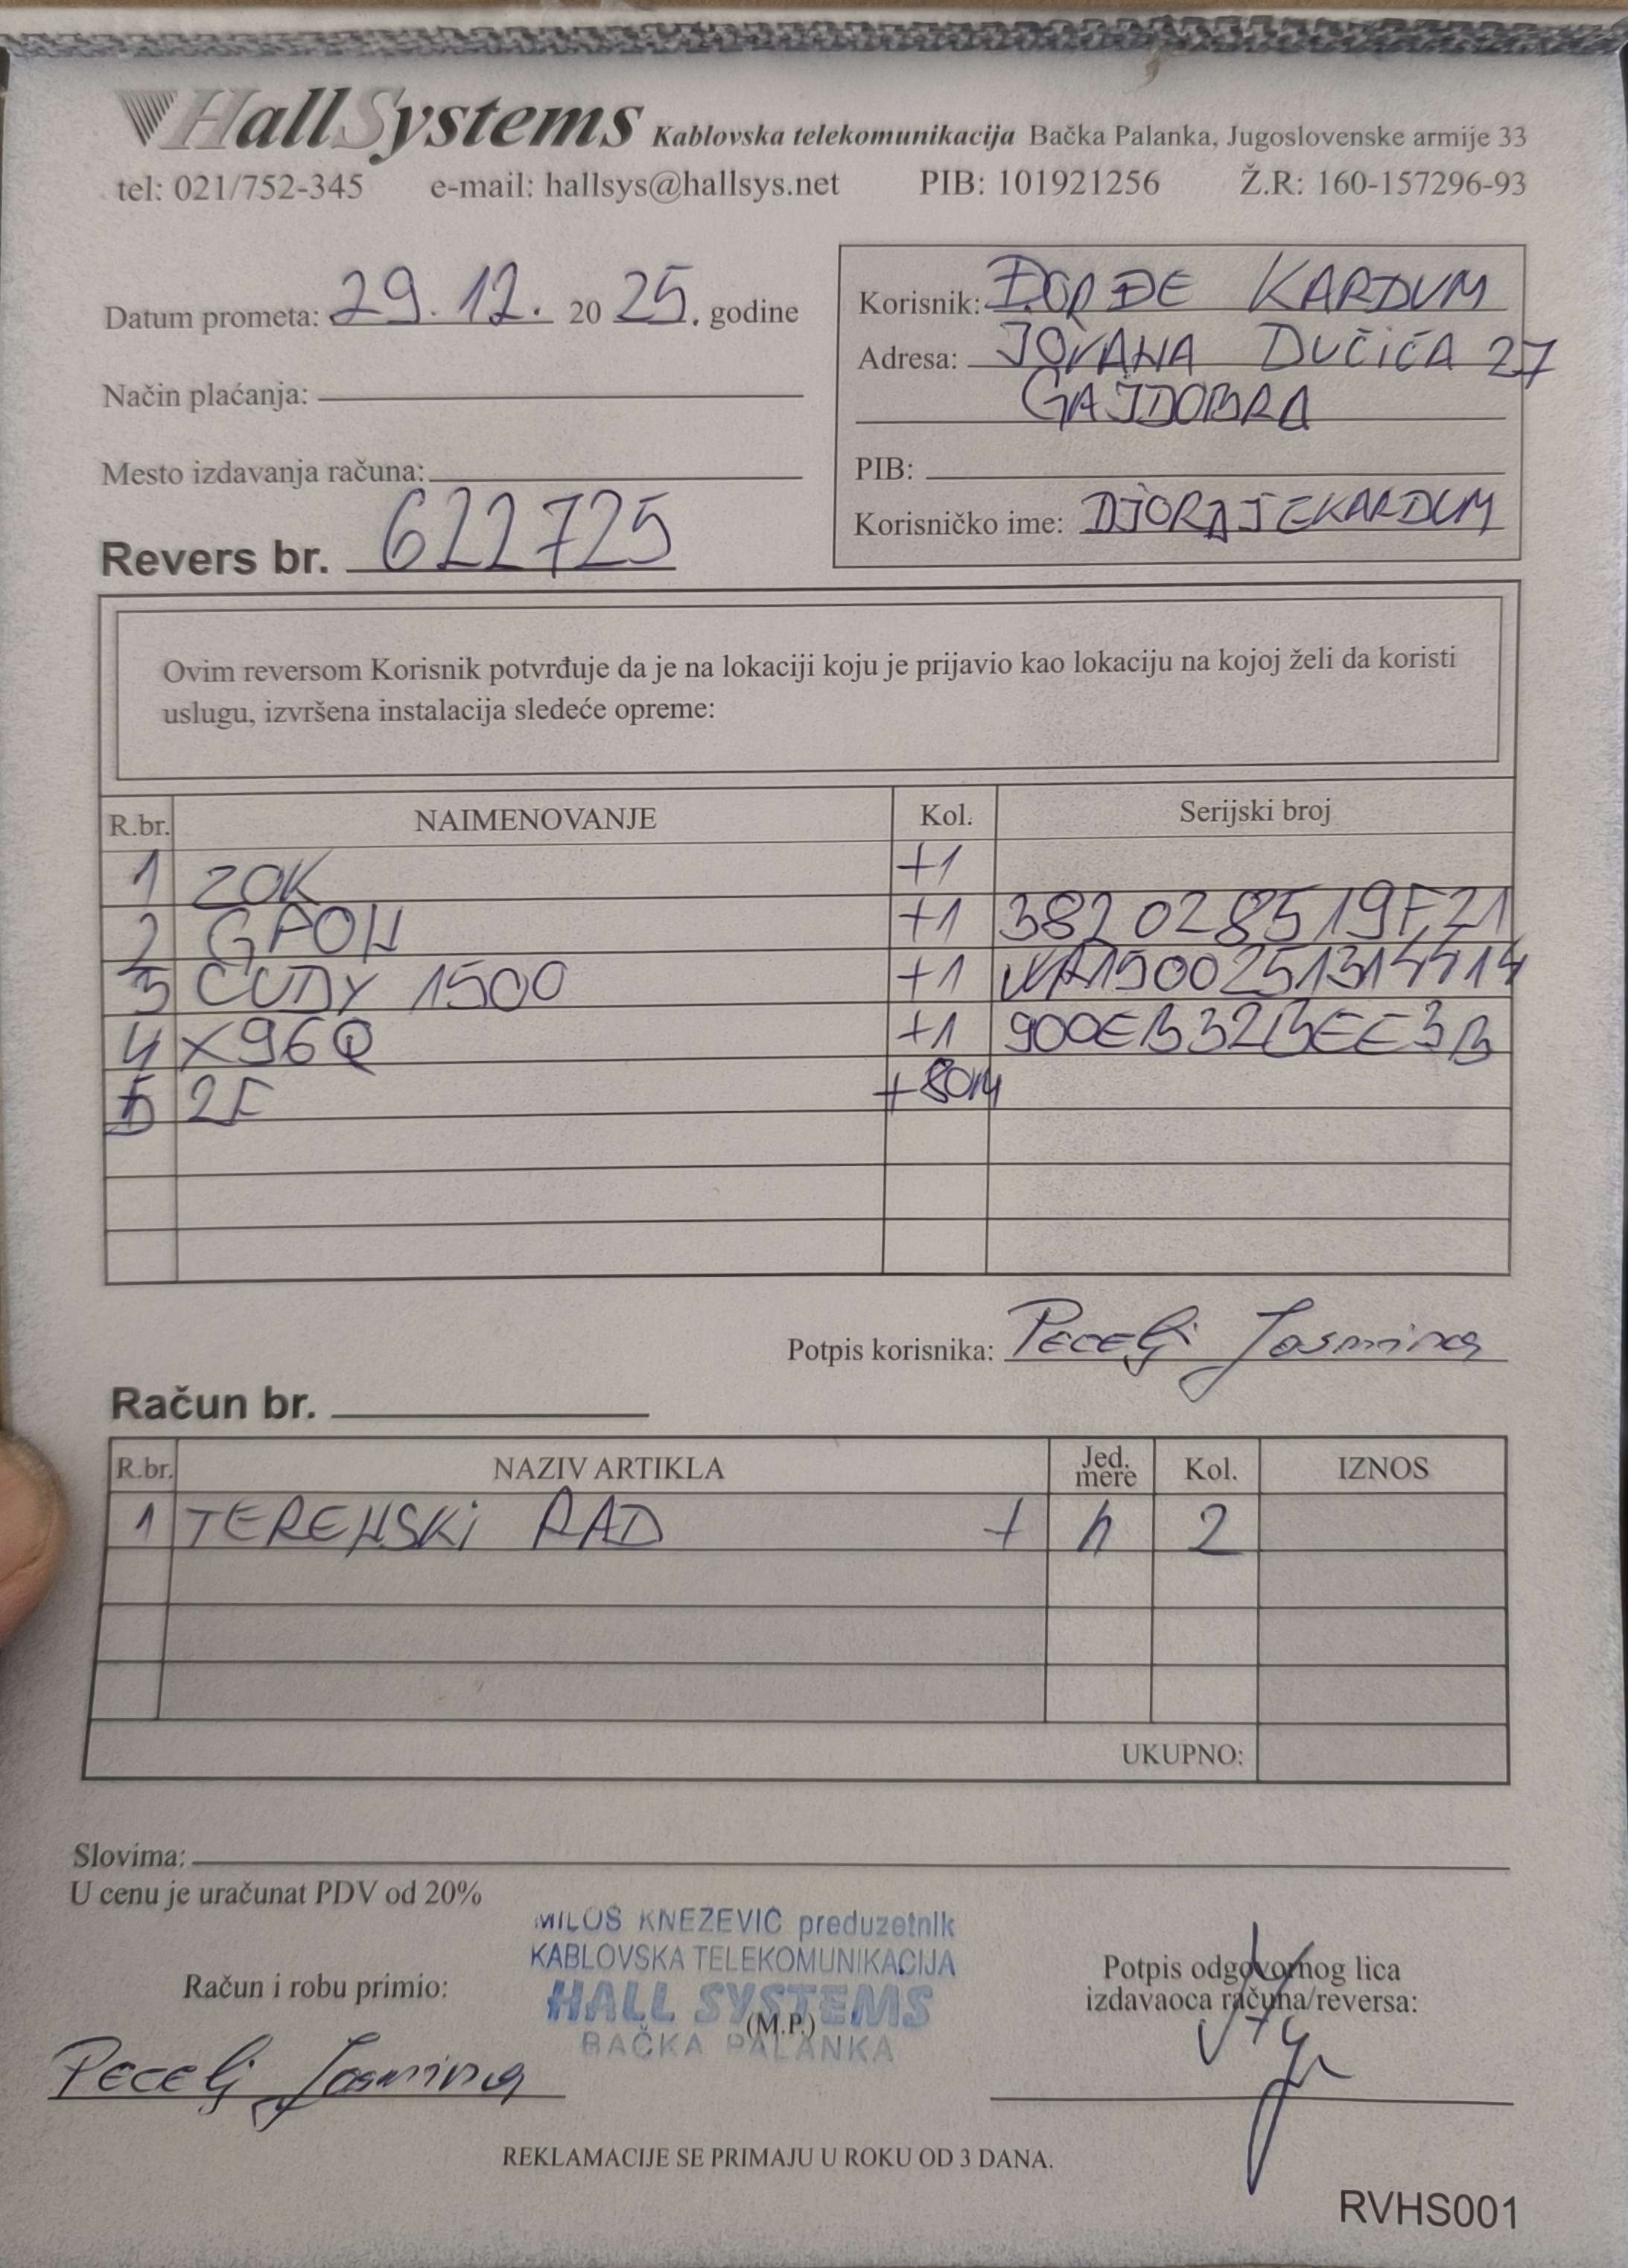 HallSystems Kablovska telekomunikacija Bačka Palanka, Jugoslovenske armije 33
tel: 021/752-345 e-mail: hallsys@hallsys.net PIB: 101921256 Ž.R: 160-157296-93
Datum prometa: 29.12. 2025. godine
Način plaćanja:
Mesto izdavanja računa:
Revers br. 622725
Korisnik: ĐORĐE KARDUM
Adresa: JOVANA DUČIĆA 27
GAJDOBRA
PIB:
Korisničko ime: DJORDJEKARDUM
Ovim reversom Korisnik potvrđuje da je na lokaciji koju je prijavio kao lokaciju na kojoj želi da koristi
uslugu, izvršena instalacija sledeće opreme:
R.br. NAIMENOVANJE Kol. Serijski broj
1 ZOK +1
2 GPON +1 382028519F21
3 CUDY 1500 +1 WR1500251314414
4 X96Q +1 900EB32BEE3B
5 2F +80M
Potpis korisnika: Pecelj Jasmina
Račun br.
R.br. NAZIV ARTIKLA Jed. mere Kol. IZNOS
1 TERENSKI RAD + h 2
UKUPNO:
Slovima:
U cenu je uračunat PDV od 20%
MILOŠ KNEŽEVIĆ preduzetnik
KABLOVSKA TELEKOMUNIKACIJA
HALL SYSTEMS
(M.P.)
BAČKA PALANKA
Račun i robu primio:
Pecelj Jasmina
Potpis odgovornog lica
izdavaoca računa/reversa:
REKLAMACIJE SE PRIMAJU U ROKU OD 3 DANA.
RVHS001